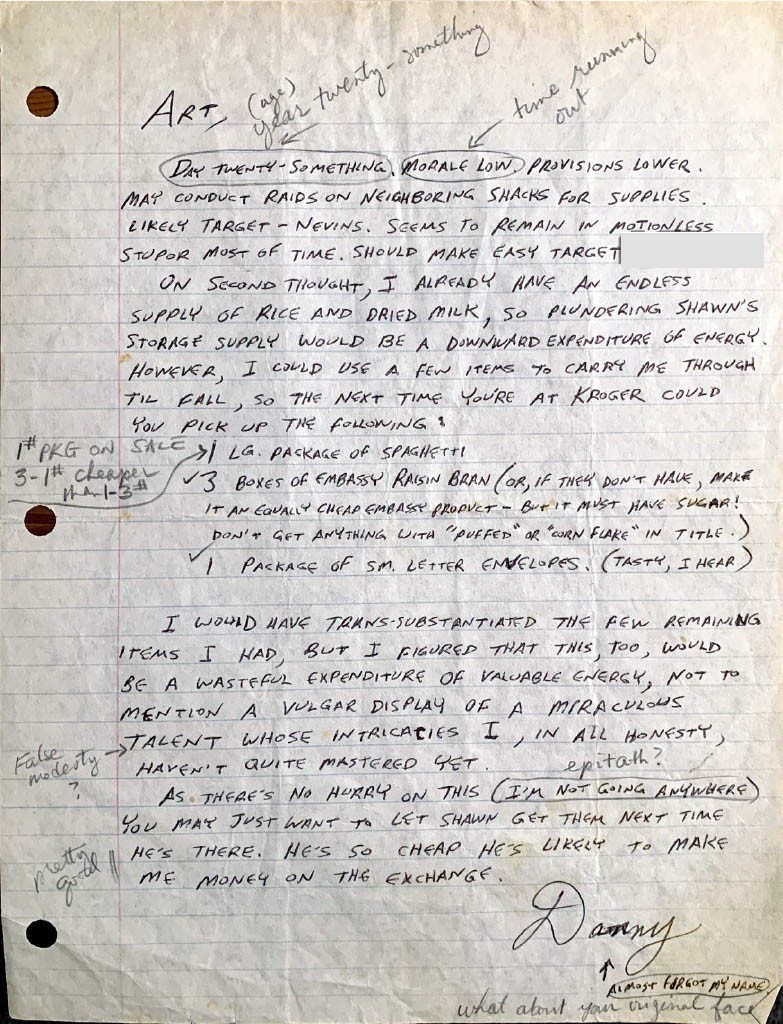 (age)
year twenty-something
time running
out
ART,
DAY TWENTY-SOMETHING. MORALE LOW, PROVISIONS LOWER.
MAY CONDUCT RAIDS ON NEIGHBORING SHACKS FOR SUPPLIES.
LIKELY TARGET - NEVINS. SEEMS TO REMAIN IN MOTIONLESS
STUPOR MOST OF TIME. SHOULD MAKE EASY TARGET
ON SECOND THOUGHT, I ALREADY HAVE AN ENDLESS
SUPPLY OF RICE AND DRIED MILK, SO PLUNDERING SHAWN'S
STORAGE SUPPLY WOULD BE A DOWNWARD EXPENDITURE OF ENERGY.
HOWEVER, I COULD USE A FEW ITEMS TO CARRY ME THROUGH
TIL FALL, SO THE NEXT TIME YOU'RE AT KROGER COULD
YOU PICK UP THE FOLLOWING:
1# PKG ON SALE
3-1# cheaper
than 1-3#
1 LG. PACKAGE OF SPAGHETTI
✓3 BOXES OF EMBASSY RAISIN BRAN (OR, IF THEY DON'T HAVE, MAKE
IT AN EQUALLY CHEAP EMBASSY PRODUCT - BUT IT MUST HAVE SUGAR!
DON'T GET ANYTHING WITH "PUFFED" OR "CORN FLAKE" IN TITLE.)
✓1 PACKAGE OF SM. LETTER ENVELOPES. (TASTY, I HEAR)
I WOULD HAVE TRANS-SUBSTANTIATED THE FEW REMAINING
ITEMS I HAD, BUT I FIGURED THAT THIS, TOO, WOULD
BE A WASTEFUL EXPENDITURE OF VALUABLE ENERGY, NOT TO
MENTION A VULGAR DISPLAY OF A MIRACULOUS
TALENT WHOSE INTRICACIES I, IN ALL HONESTY,
HAVEN'T QUITE MASTERED YET.
False
modesty
?
epitath?
AS THERE'S NO HURRY ON THIS (I'M NOT GOING ANYWHERE)
YOU MAY JUST WANT TO LET SHAWN GET THEM NEXT TIME
HE'S THERE. HE'S SO CHEAP HE'S LIKELY TO MAKE
ME MONEY ON THE EXCHANGE.
pretty
good!!
Danny
ALMOST FORGOT MY NAME
what about your original face